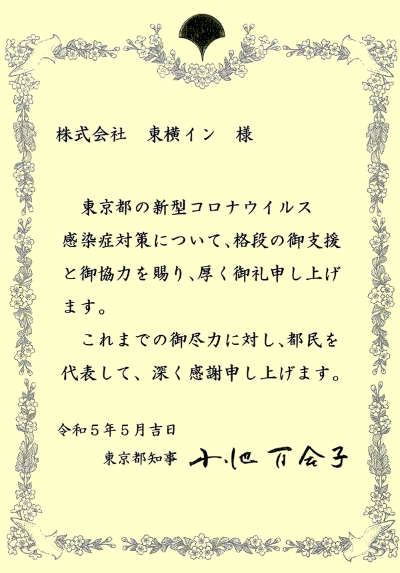 株式会社　東横イン　様
東京都の新型コロナウイルス
感染症対策について、格段の御支援
と御協力を賜り、厚く御礼申し上げ
ます。
これまでの御尽力に対し、都民を
代表して、深く感謝申し上げます。
令和５年５月吉日
東京都知事　小池百合子